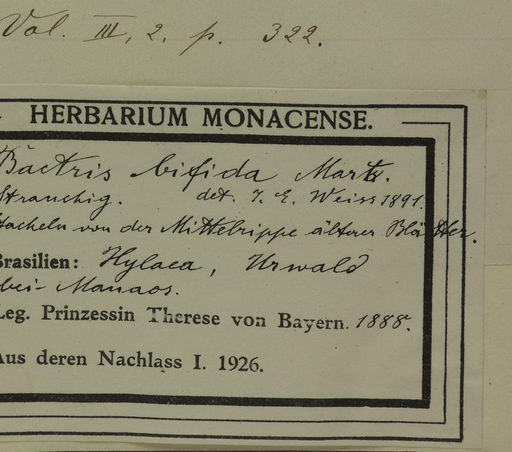 Vol. III, 2. p. 322.
HERBARIUM MONACENSE.
Bactris bifida Mart.
Strauchig. det. J. E. Weiss 1891.
Stacheln von der Mittelrippe älterer Blätter.
Brasilien: Hylaea, Urwald
bei Manaos.
Leg. Prinzessin Therese von Bayern. 1888.
Aus deren Nachlass I. 1926.